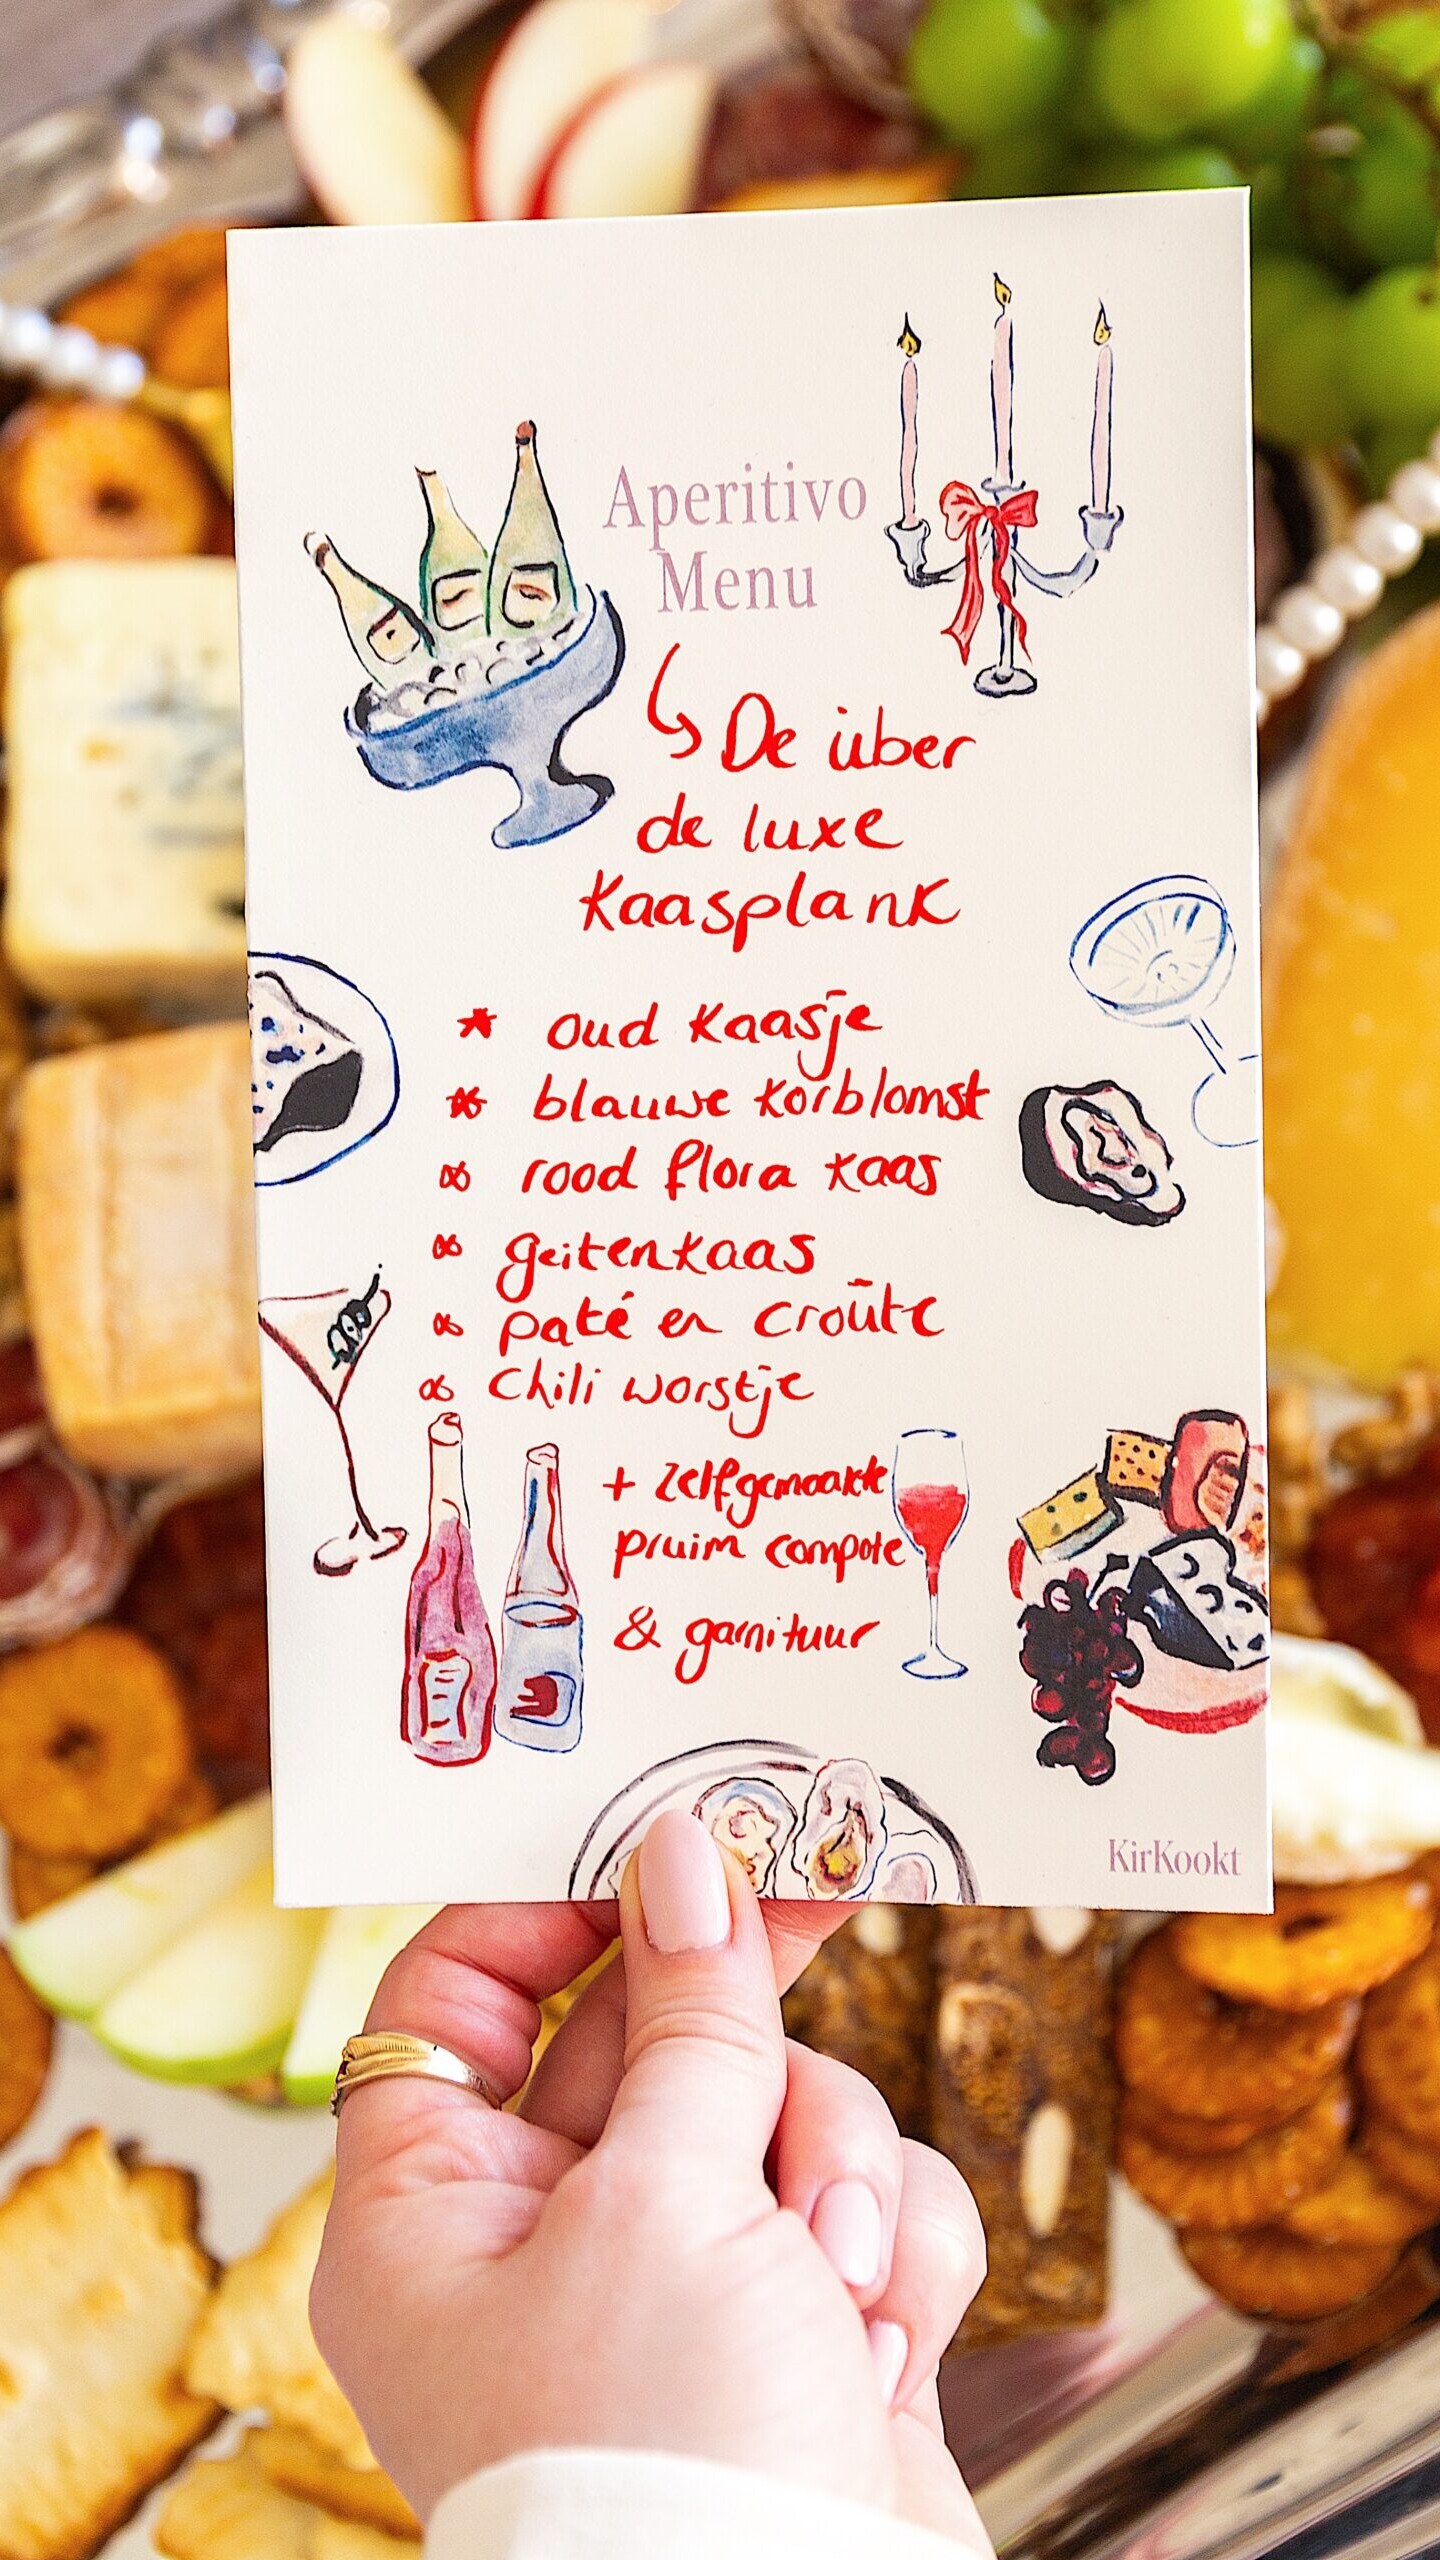 Aperitivo
Menu
De über
de luxe
kaasplank
oud kaasje
blauwe korblomst
rood flora kaas
geitenkaas
paté en croûte
chili worstje
+ zelfgemaakte
pruim compote
& garnituur
KirKookt